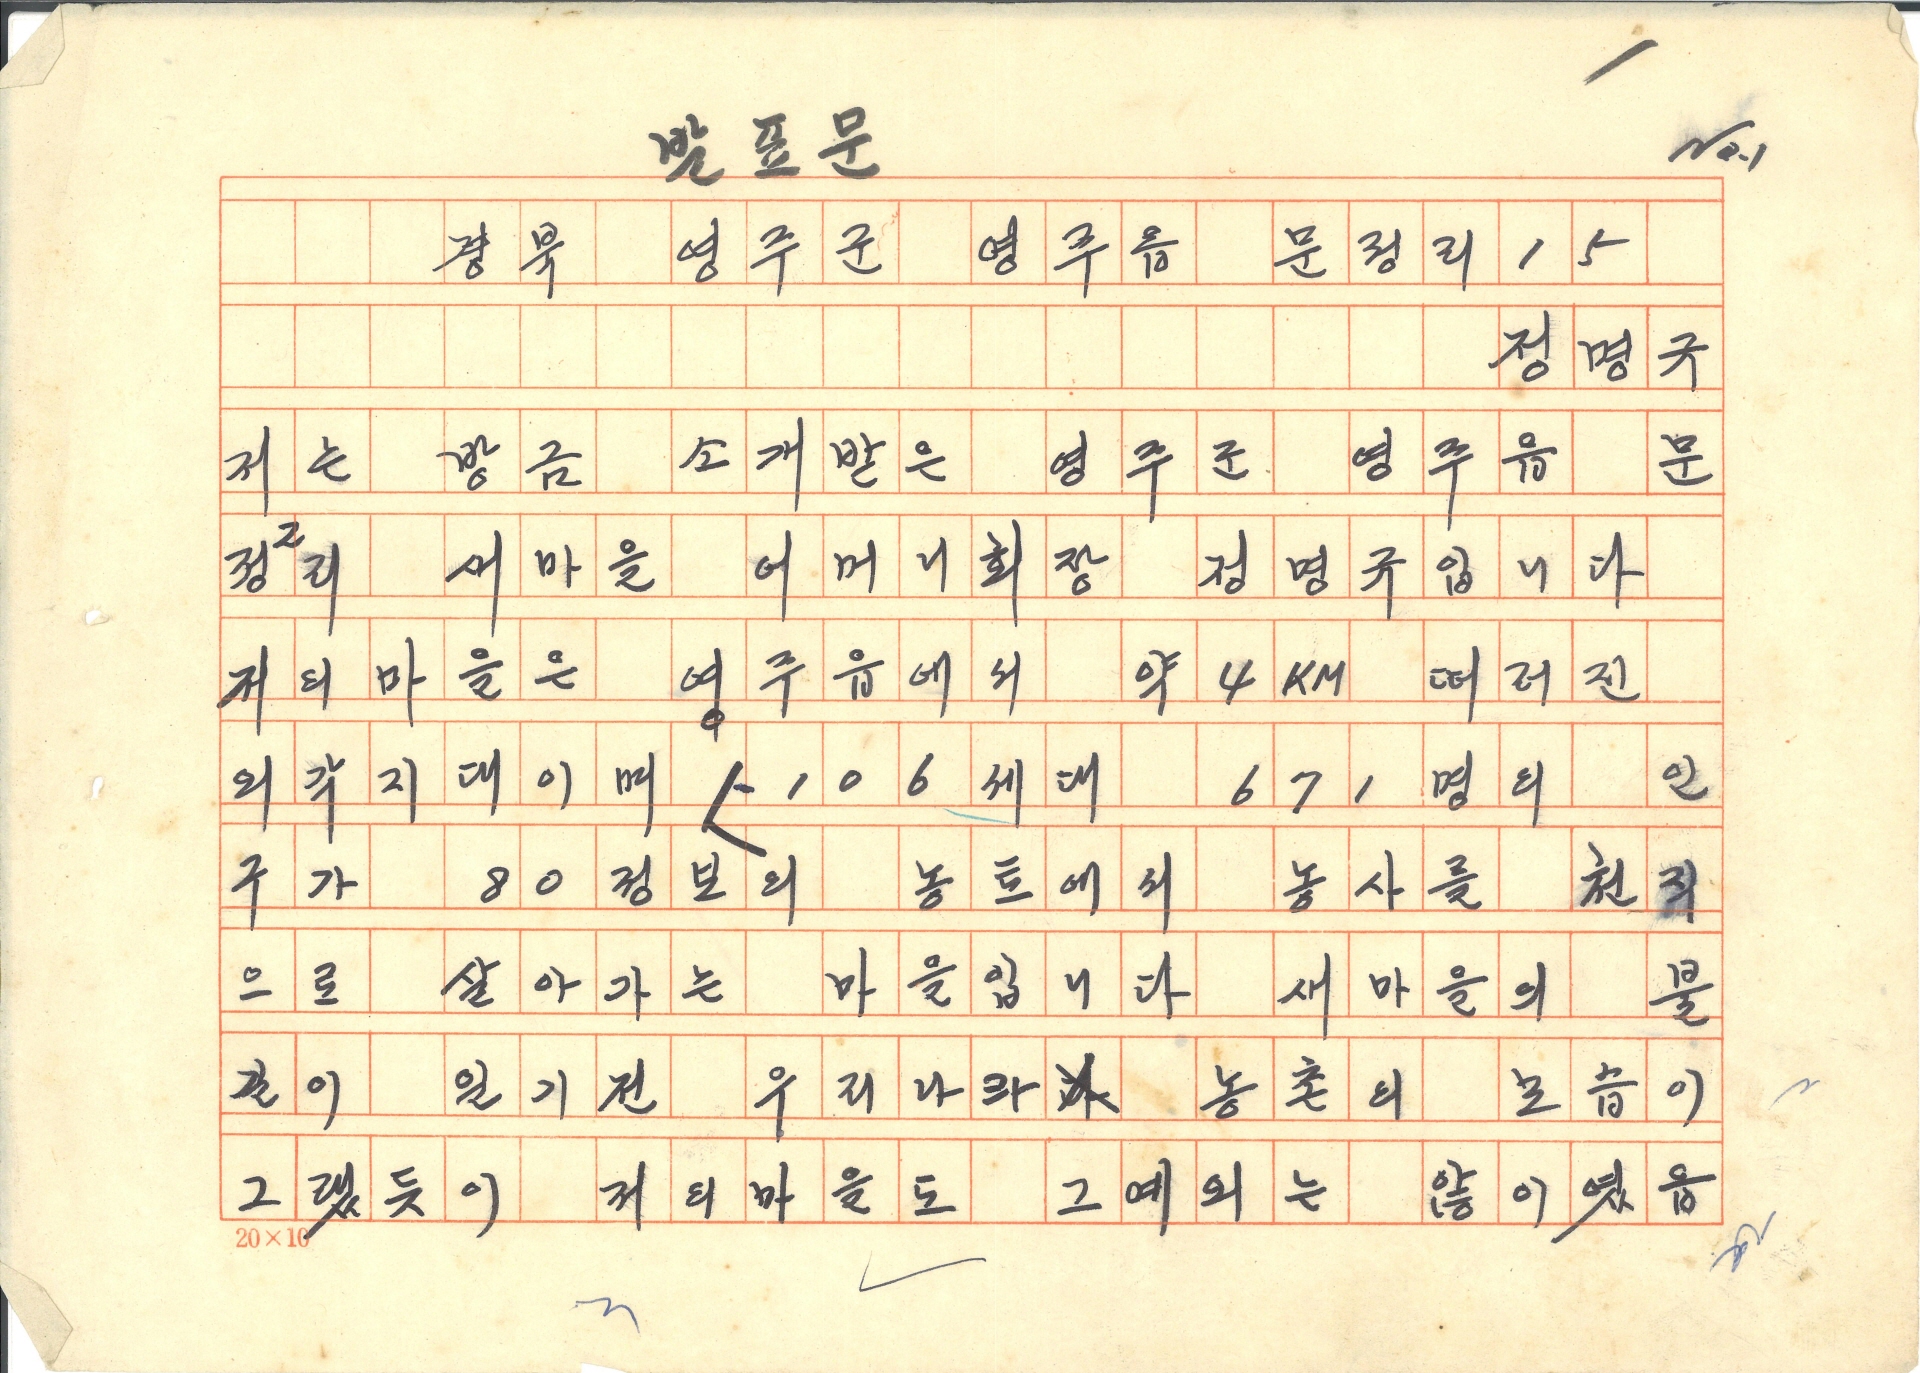 발표문
No-1
경북 영주군 영주읍 문정리15
정명규
저는 방금 소개받은 영주군 영주읍 문
정2리 새마을 어머니회장 정명규입니다
저의마을은 영주읍에서 약4KM 떠러진
외각지대이며 106세대 671명의 인
구가 80정보의 농토에서 농사를 천직
으로 살아가는 마을입니다 새마을의 불
길이 일기전 우리나라 농촌의 모습이
그랬듯이 저의마을도 그예외는 않이였읍
20×10